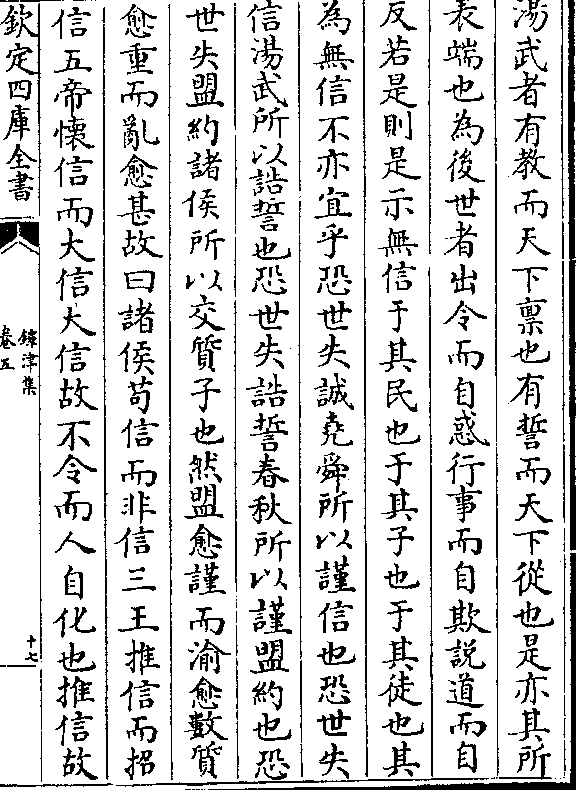 湯武者有教而天下禀也有誓而天下從也是亦其所
表端也為後世者出令而自惑行事而自欺説道而自
反若是則是示無信于其民也于其子也于其徒也其
為無信不亦宜乎恐世失誠堯舜所以謹信也恐世失
信湯武所以誥誓也恐世失誥誓春秋所以謹盟約也恐
世失盟約諸侯所以交質子也然盟愈謹而渝愈數質
愈重而亂愈甚故曰諸侯苟信而非信三王推信而招
信五帝懷信而大信大信故不令而人自化也推信故
欽定四庫全書
鐔津集
卷五
十七